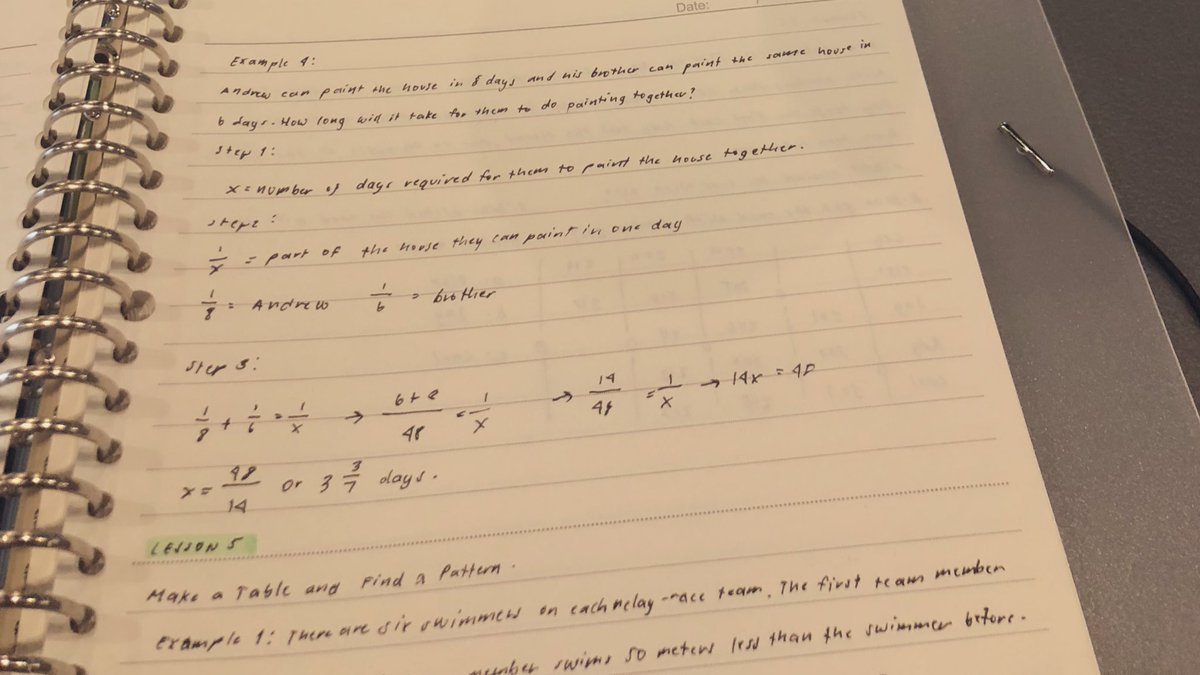 Date:
Example 4:
Andrew can paint the house in 8 days and his brother can paint the same house in
6 days. How long will it take for them to do painting together?
Step 1:
x = number of days required for them to paint the house together.
Step 2:
1/x = part of the house they can paint in one day
1/8 = Andrew 1/6 = brother
Step 3:
1/8 + 1/6 = 1/x → 6+8/48 = 1/x → 14/48 = 1/x → 14x = 48
x = 48/14 or 3 3/7 days.
LESSON 5
Make a Table and Find a Pattern.
Example 1: There are six swimmers on each relay-race team. The first team member
member swims 50 meters less than the swimmer before.